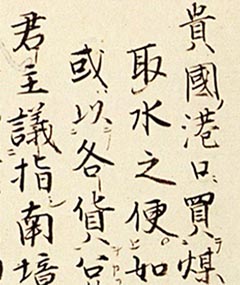 貴國港口買煤
取水之便。如
或以各貨公
君主議指南境